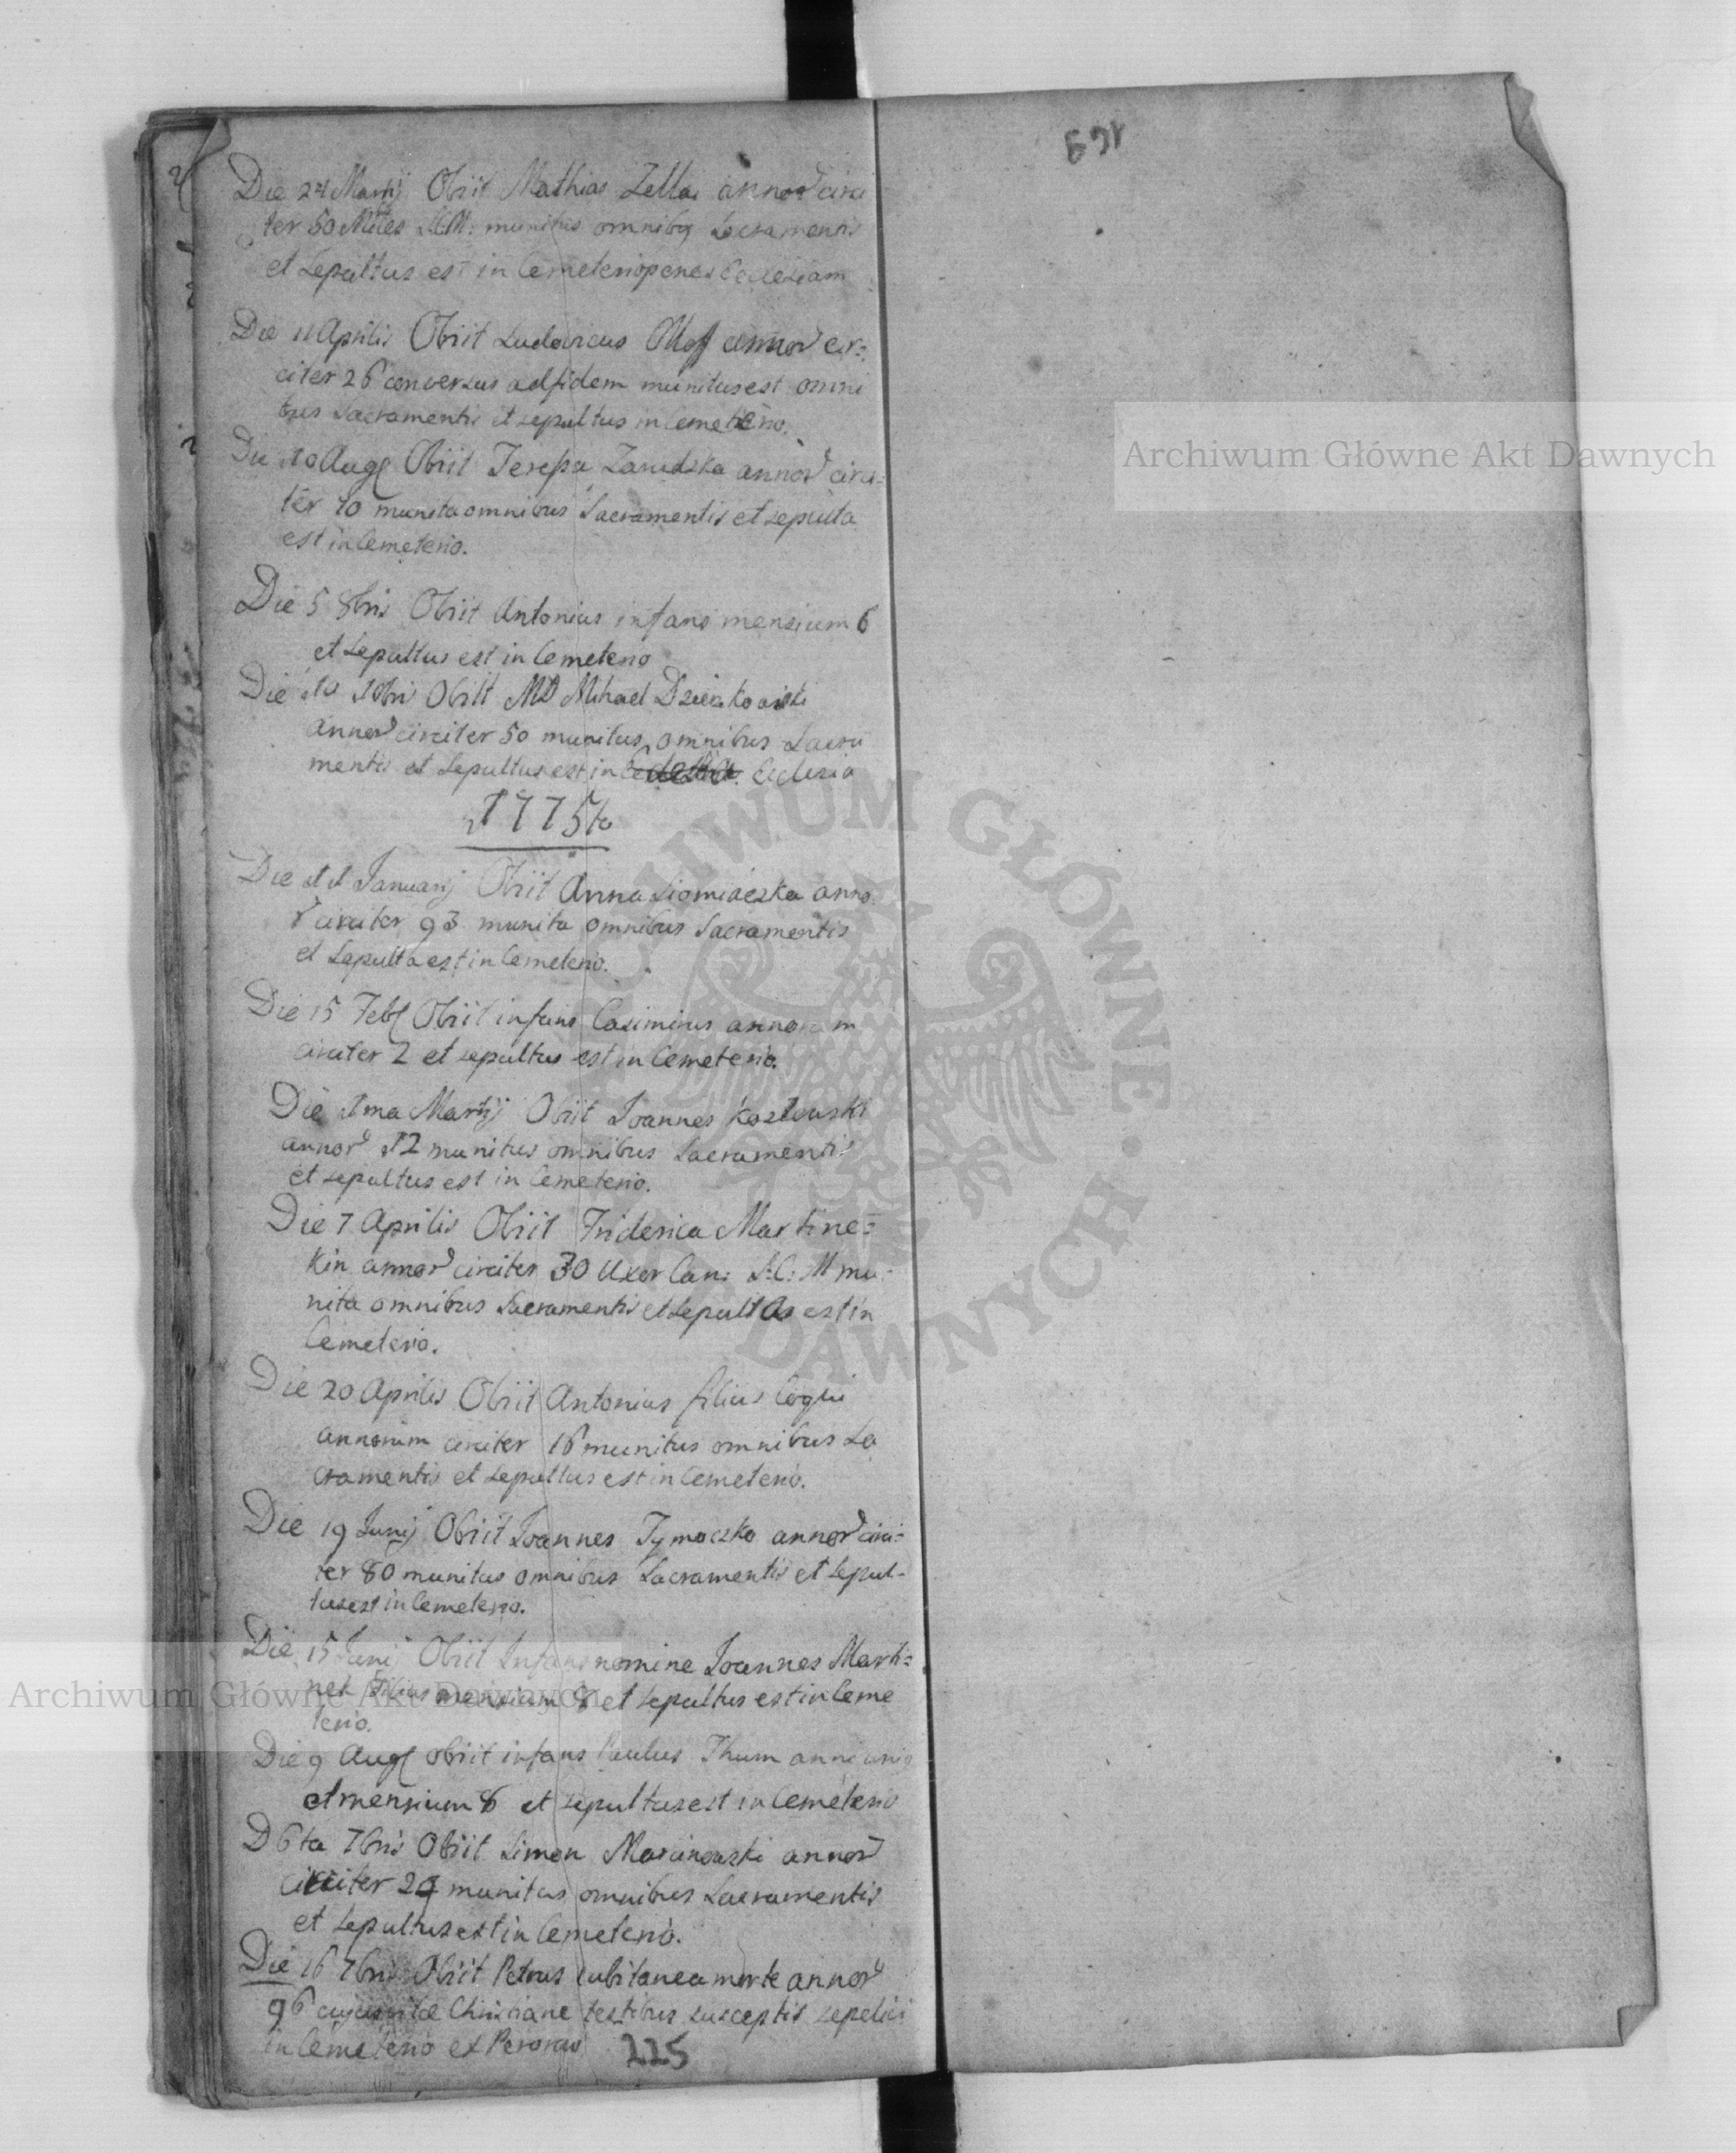 Die 24 Martij Obiit Mathias Zella annor circi
ter 50 Miles munitus omnibq Sacramentis
et Sepultus est in Cemeterio penes Ecclesiam
Die 11 Aprilis Obiit Ludovicus annor cir=
citer 26 conversus ad fidem munitus est omni
bus Sacramentis et sepultus in Cemeterio.
Die 10 Aug Obiit Teresia Zarudzka annor circi=
ter 70 munita omnibus Sacramentis et sepulta
est in Cemeterio.
Die 5 8bris Obiit Antonius infans mensium 6
et Sepultus est in Cemeterio
Die Obiit MD Mihael
annor circiter 50 munitus omnibus Sacra
mentis et Sepultus est in Ecclesia
1775to
Die 11 Januarij Obiit Anna anno
r circiter 93 munita omnibus Sacramentis
et Sepulta est in Cemeterio.
Die 15 Feb Obiit infans Casimirus annorum
circiter 2 et sepultus est in Cemeterio.
Die 1ma Martij Obiit Joannes Kozlowski
annor 12 munitus omnibus Sacramentis
et sepultus est in Cemeterio.
Die 7 Aprilis Obiit Friderica Martine=
kin annor circiter 30 Uxor Can: S:C:M mu=
nita omnibus Sacramentis et Sepulta est in
Cemeterio.
Die 20 Aprilis Obiit Antonius filius Coqui
annorum circiter 16 munitus omnibus Sa
cramentis et Sepultus est in Cemeterio.
Die 19 Junij Obiit Joannes Tymoczko annor circi=
ter 80 munitus omnibus Sacramentis et Sepul-
tus est in Cemeterio.
Die 15 Junij Obiit Infans nomine Joannes Marti=
nek Filius mensium 8 et Sepultus est in Ceme
terio.
Die 9 Aug obiit infans Paulus Thum anni unius
et mensium 6 et sepultus est in Cemeterio
D 6ta 7bris Obiit Simon Marcinowski annor
circiter 29 munitus omnibus Sacramentis
et Sepultus est in Cemeterio.
Die 16 7bris Obiit Petrus subitanea morte annor
96 Christiane testibus susceptis sepelivi
in Cemeterio
225
169
Archiwum Główne Akt Dawnych
Archiwum Główne Akt Dawnych
ARCHIWUM GŁÓWNE AKT DAWNYCH